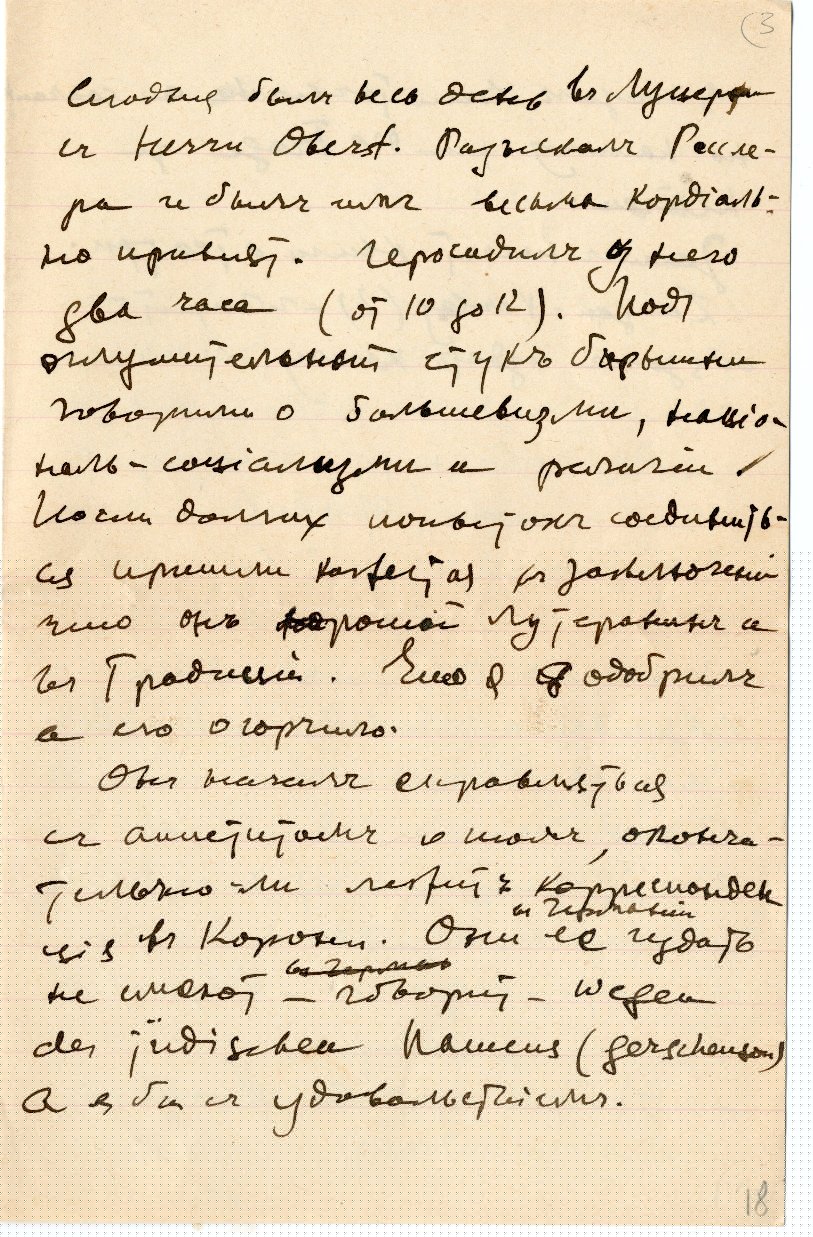 (3
Сегодня былъ весь день въ Люцернѣ
съ Herrn Oberst. Разыскалъ Рессле-
ра и былъ имъ весьма кордіаль-
но принятъ. Просидѣлъ у него
два часа (отъ 10 до 12). Подъ
оглушительный стукъ
говорили о большевизмѣ, націо-
наль-соціализмѣ и религіи.
Послѣ долгихъ попытокъ соединить-
ся пришли къ заключенію
что онъ хорошій Лутеранинъ и
въ Традиціи. Его я одобрилъ
а его огорчило.
Онъ началъ справляться
съ аппетитомъ о томъ, оконча-
тельно-ли корреспонден
ція въ Короны. Они ее издать
въ Германіи
не смѣютъ – говоритъ – wegen
des jüdischen Namens (Gerschenson)
А я бы съ удовольствіемъ.
18